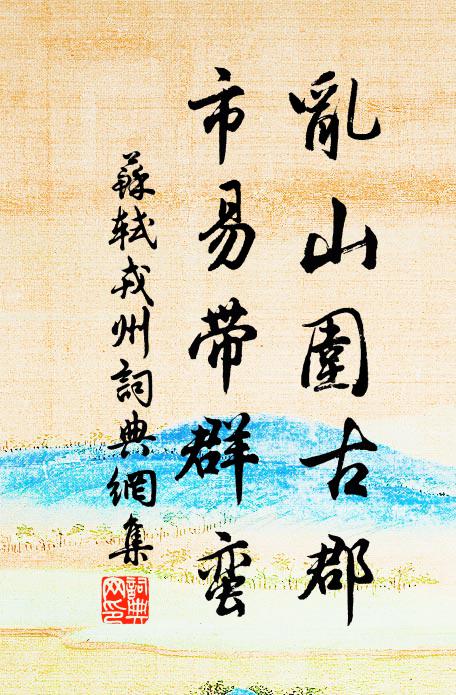 亂山圍古郡
市易帶群蠻
蘇軾戎州詞典網集
詞典網印